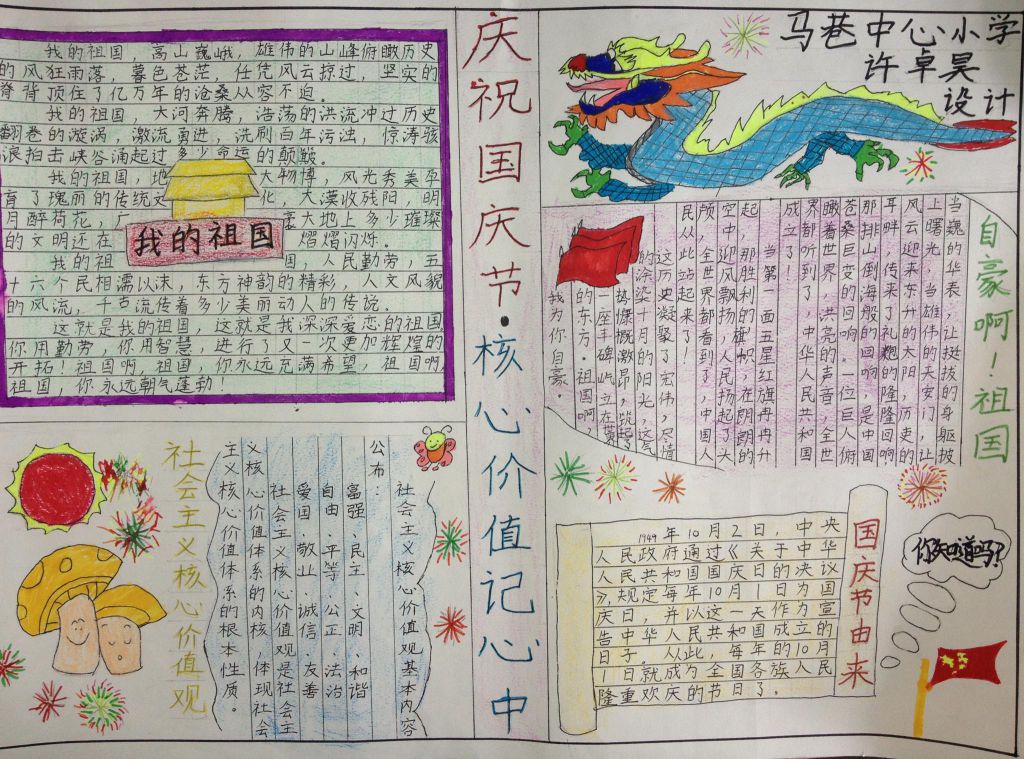 我的祖国，高山巍峨，雄伟的山峰俯瞰历史
的风狂雨落，暮色苍茫，任凭风云掠过，坚实的
脊背顶住了亿万年的沧桑从容不迫。
我的祖国，大河奔腾，浩荡的洪流冲过历史
翻卷的漩涡，激流勇进，洗刷百年污浊，惊涛骇
浪拍击峡谷涌起过多少命运的颠簸。
我的祖国，地 大物博，风光秀美孕
育了瑰丽的传统文 化，大漠收残阳，明
月醉荷花，广 豪大地上多少璀璨
的文明还在 熠熠闪烁。
我的祖 国，人民勤劳，五
十六个民相濡以沫，东方神韵的精彩，人文风貌
的风流，千古流传着多少美丽动人的传说。
这就是我的祖国，这就是我深深爱恋的祖国
你用勤劳，你用智慧，进行了又一次更加辉煌的
开拓！祖国啊，祖国，你永远充满希望，祖国啊，
祖国，你永远朝气蓬勃！
我的祖国
庆祝国庆节·核心价值记心中
马巷中心小学
许卓昊
设计
自豪啊！祖国
当巍的华表，让挺拔的身躯披
上曙光，当雄伟的天安门，让
风云迎来东升的太阳，历史的
耳畔，传来了礼炮的隆隆回响
那排山倒海般的回响，是中国
苍桑巨变的回响。一位巨人俯
瞰着世界，洪亮的声音，全世
界都听到了，中华人民共和国
成立了！
当第一面五星红旗冉冉升
起，那胜利的旗帜，在朗朗的
空中迎风飘扬，人民扬起了大
颅，全世界都看到了，中国人
民从此站起来了！
这历史凝聚了宏伟，尽情
的涂染十月的阳光，这气
势慷慨激昂，筑起了
一座丰碑，屹立在
的东方。祖国啊
我为你自豪。
社会主义核心价值观
社会主义核心价值观基本内容
公布：
富强、民主、文明、和谐
自由、平等、公正、法治
爱国、敬业、诚信、友善
社会主义核心价值观是社会主
义核心价值体系的内核，体现社会
主义核心价值体系的根本性质。
国庆节由来
1949年10月2日，中央
人民政府通过《关于中华
人民共和国国庆日的决议
》，规定每年10月1日为国
庆日，并以这一天作为宣
告中华人民共和国成立的
日子。从此，每年的10月
1日就成为全国各族人民
隆重欢庆的节日了。
你知道吗？